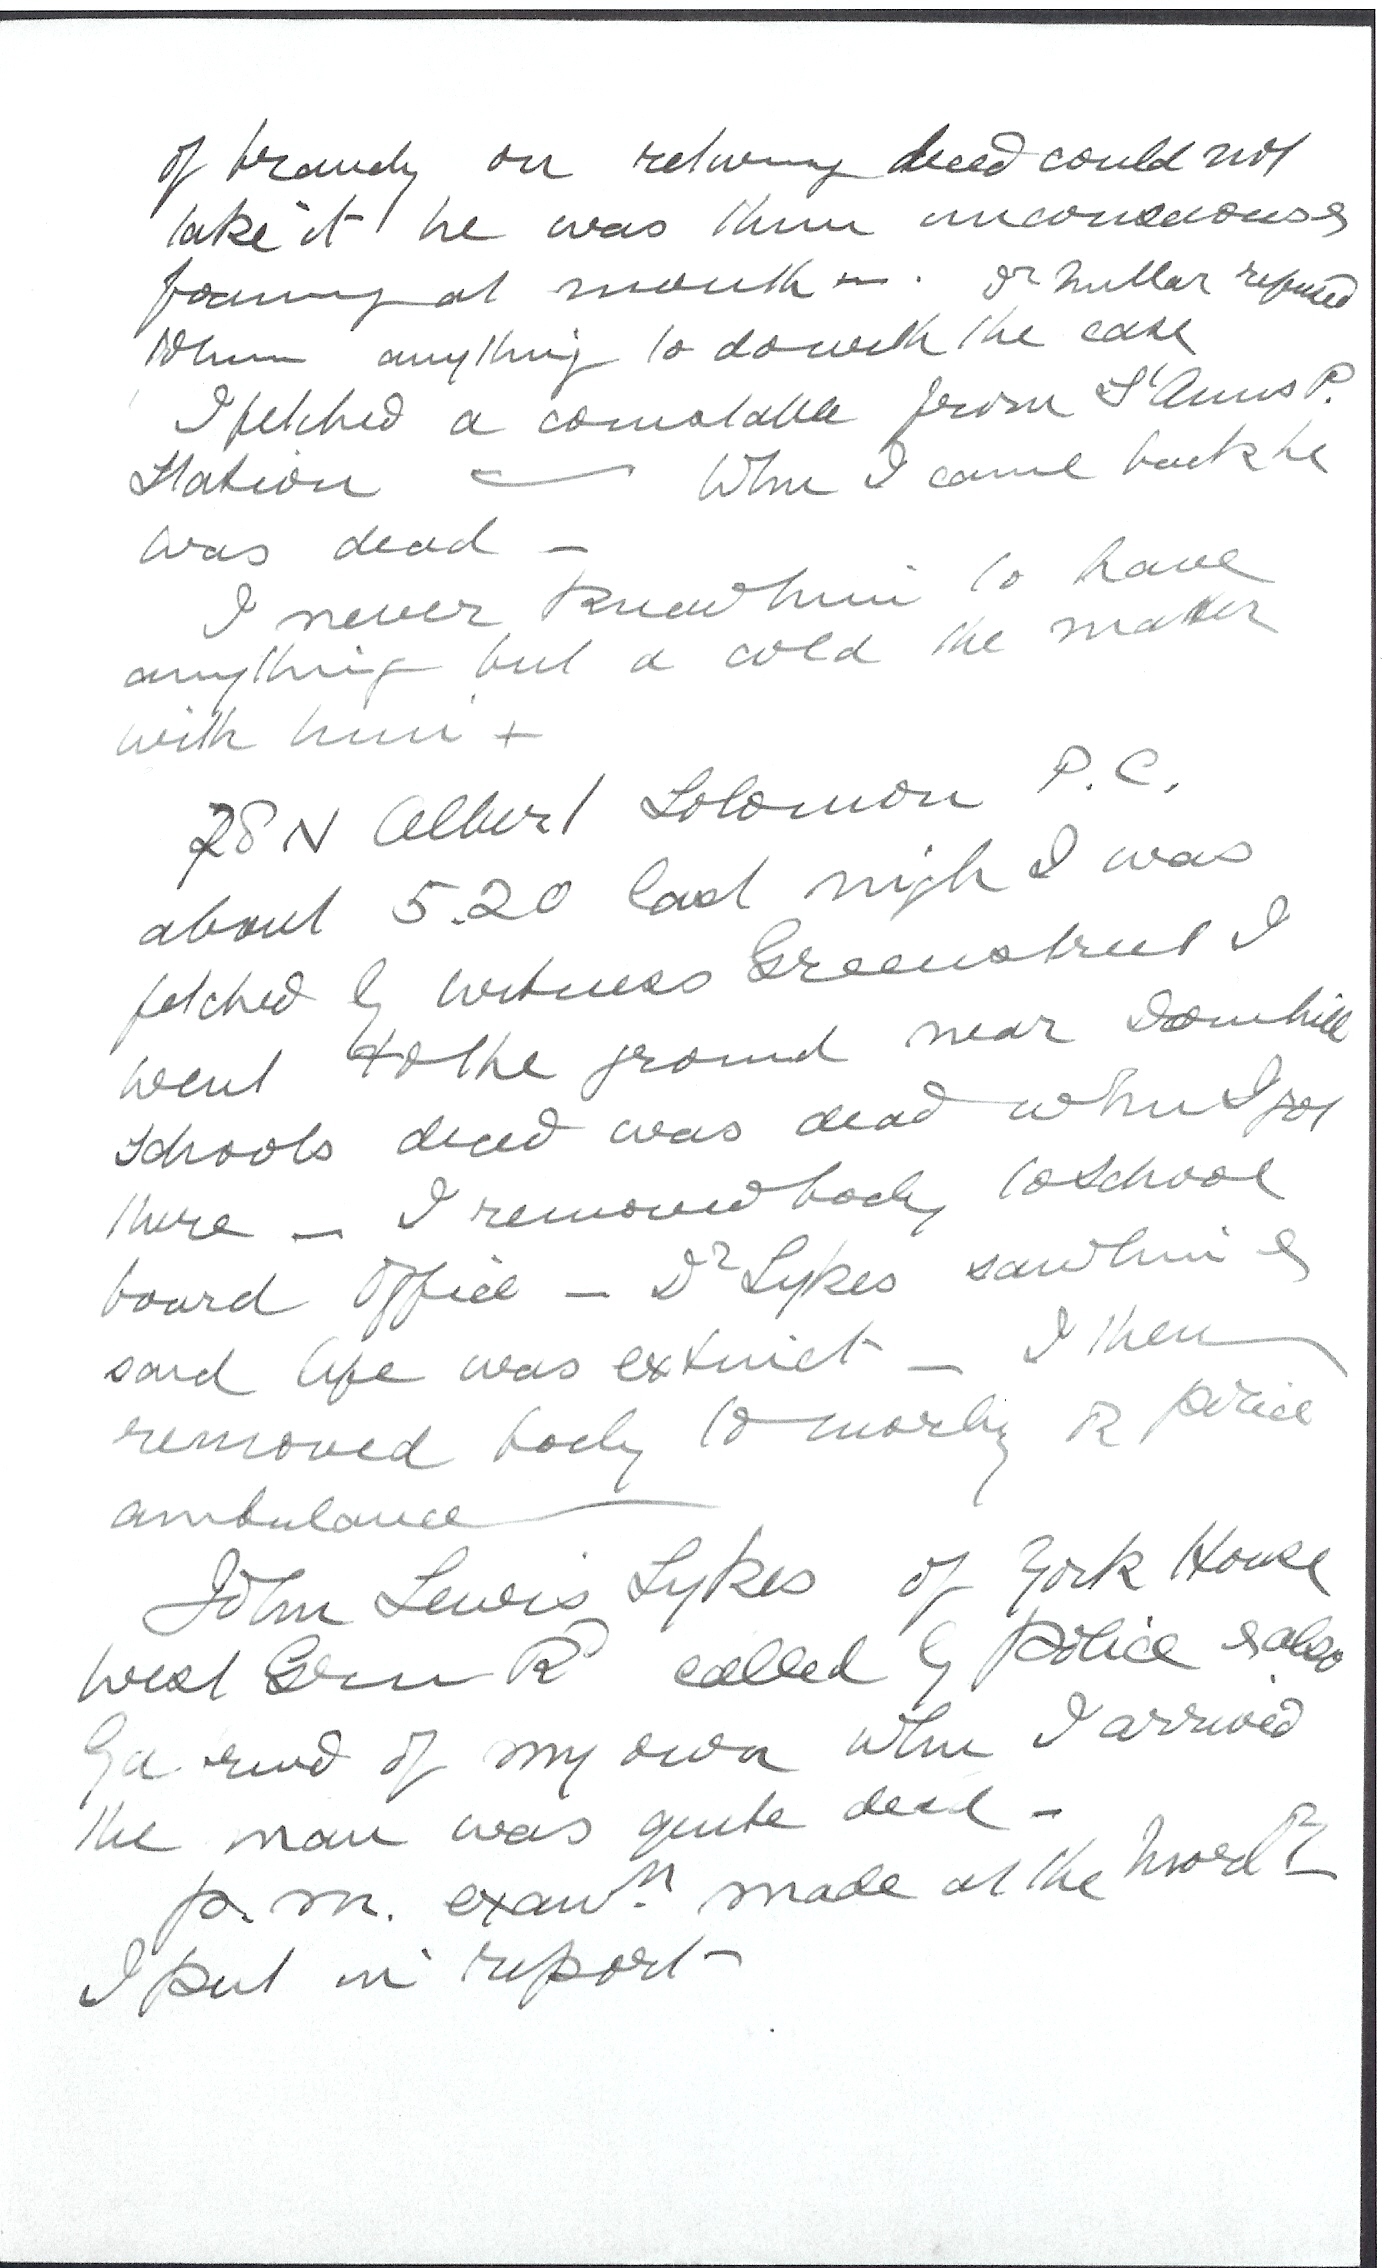 of brandy on returning deced could not
take it he was then unconscious &
foaming at mouth — . Dr Millar refused
to have anything to do with the case
I fetched a constable from St Anns P.
Station — When I came back he
was dead —
I never knew him to have
anything but a cold the matter
with him +
N Albert Solomon P.C.
about 5.20 last nigh I was
fetched by witness Greenstreet I
went to the ground near Downhill
Schools deced was dead when I got
there — I removed body to school
board office — Dr Sykes saw him &
said life was extinct — I then
removed body to morty police
ambulance
John Lewis Sykes of York House
West Green Rd called by police & also
by a of my own when I arrived
the man was quite dead —
p. m. examn. made at the
I put in report —